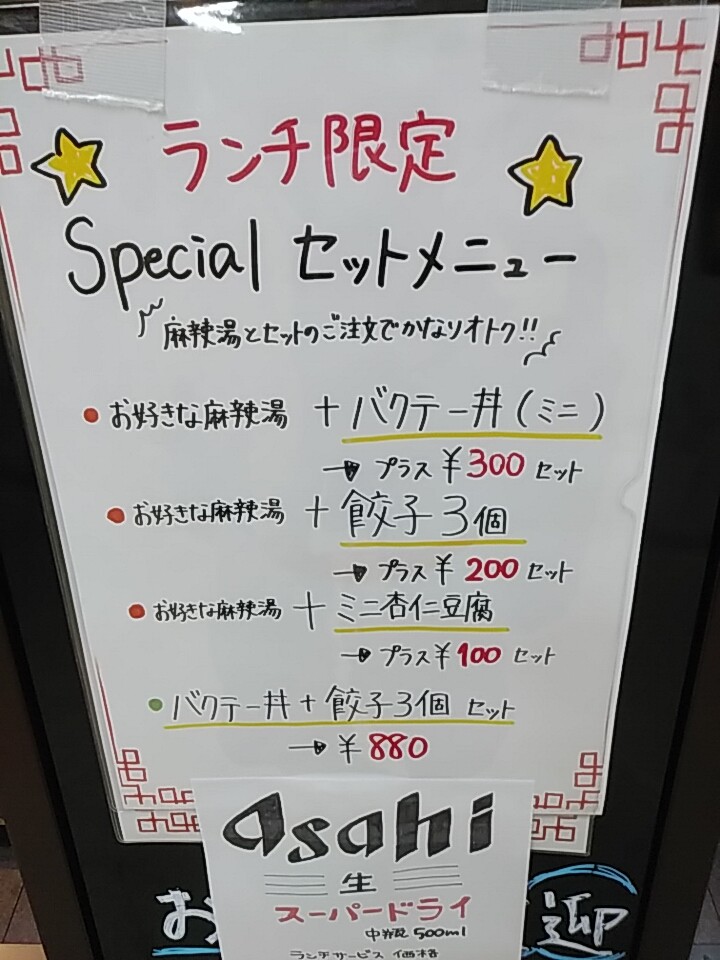 ランチ限定
Special セットメニュー
麻辣湯とセットのご注文でかなりオトク!!
お好きな麻辣湯 + バクテー丼(ミニ)
→ プラス ¥300 セット
お好きな麻辣湯 + 餃子3個
→ プラス ¥200 セット
お好きな麻辣湯 + ミニ杏仁豆腐
→ プラス ¥100 セット
バクテー丼+餃子3個 セット
→ ¥880
asahi
生
スーパードライ
中瓶 500ml
ランチサービス 価格
お 迎